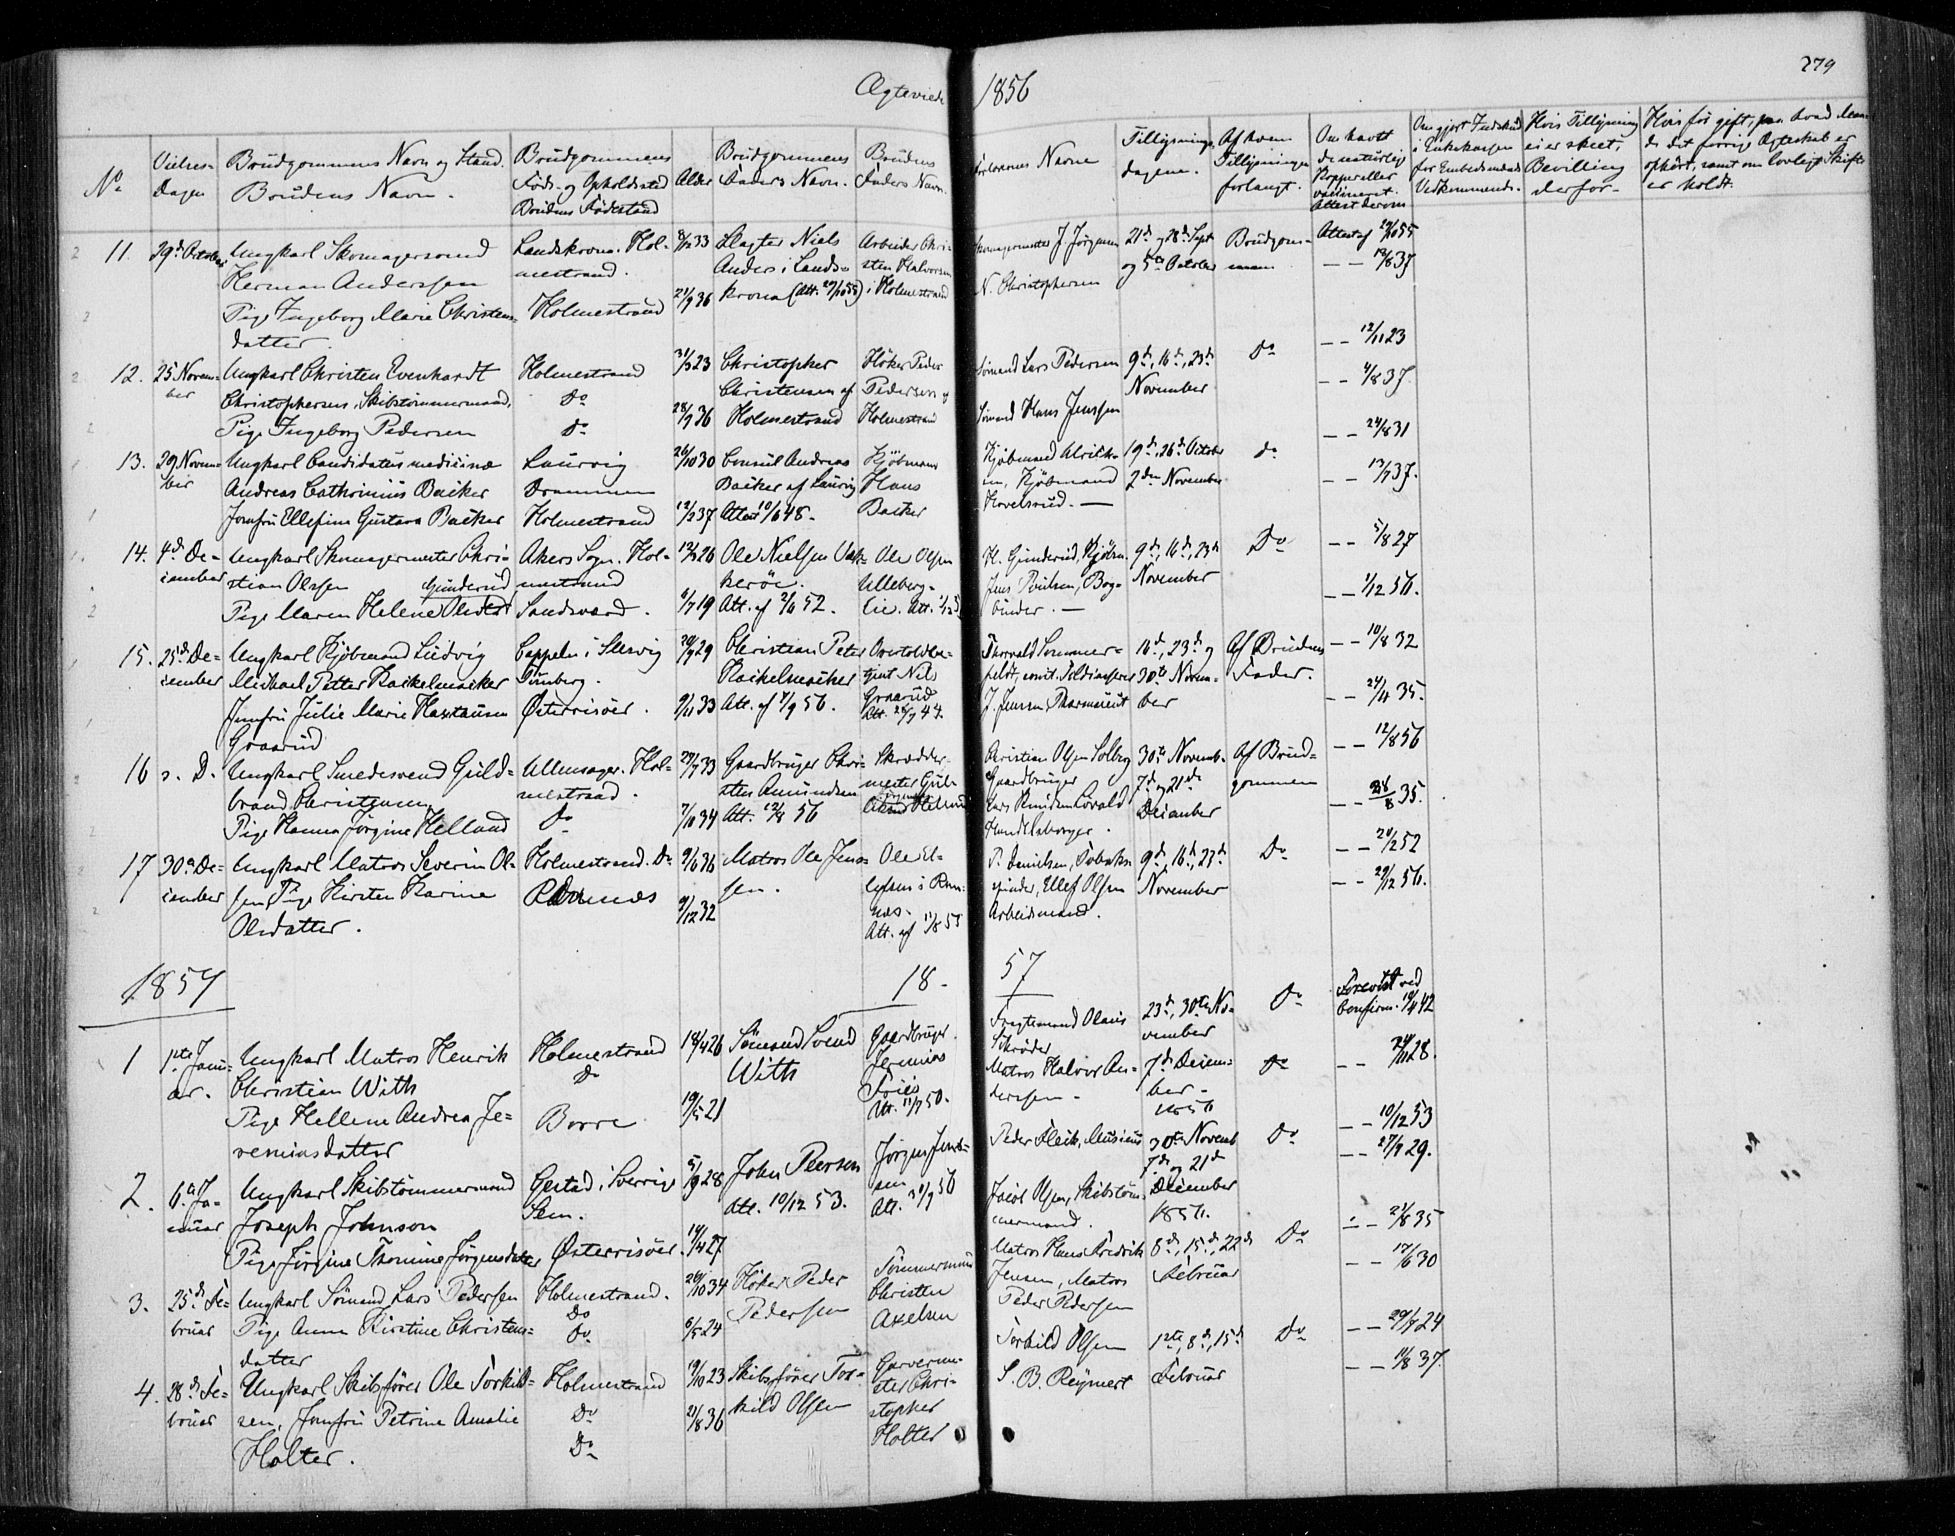 Ægteviede 1856
279
No
Vielses-
Dagen
Brudgommens Navn og Stand.
Brudens Navn.
Brudgommens
Føds- og Opholdssted
Brudens Fødestand
Alder
Brudgommens
Faders Navn.
Brudens
Faders Navn.
Forlovernes Navne
Tillysnings-
dagene.
Af hvem
Tillysningen
forlangt.
Om havt
de naturlige
Kopper eller
vaccineret.
Attest derom
Om gjort Indskud
i Enkekassen
for Embedsmænds
Vedkommende.
Hvis Tillysning
ei er skeet,
Bevilling
derfor
Hvis før gift, paa hvad Maa-
de det forrige Ægteskab er
ophørt, samt om lovligt Skifte
er holdt.
11.
29de October
Ungkarl Skomagersvend
Herman Anderssen
Pige Ingeborg Marie Christens-
datter
Landskrona. Hol-
mestrand.
Holmestrand
8/12 33
21/9 36
Slagter Niels
Anders i Lands-
krona (Att. 27/10 55)
Arbeider Chri-
sten Halvorsen
i Holmestrand
Skomagermester J. Jørgensen
N. Christophersen
21de og 28de Sept
og 5te October
Brudgom-
men
Attest af 29/10 55
— — 19/8 37
12.
25 Novem-
ber
Ungkarl Christen Evenhardt
Christophersen, Skibstømmermand,
Pige Ingeborg Pedersen
Holmestrand
Do
Do
31/3 23
28/9 36
Christopher
Christensen af
Holmestrand
Høker Peder
Pedersen af
Holmestrand
Sømand Lars Pedersen
Sømand Hans Jenssen
9de, 16de, 23de
November
Do
— — 12/11 23
— — 4/8 37
13.
29 Novem-
ber
Ungkarl Candidatus medicinæ
Andreas Cathrinius Backer
Jomfru Ellefine Gustava Backer
Laurvig
Drammen
Holmestrand
26/10 30
12/2 37
Consul Andreas
Backer af Laurvig
Attest 10/6 48.
Kjøbmand
Hans
Backer
Kjøbmand Ulrich-
sen, Kjøbmand
Hovelsrud. —
19de, 26de October
2den November
do
— — 24/8 31
— — 13/7 37.
14.
4de De-
cember
Ungkarl Skomagermester Chri-
stian Olsen Gunderud
Pige Maren Helene Olsdatter
Akers Sogn. Hol-
mestrand
Sandsværd.
13/2 26
6/7 19
Ole Nielsen Vak-
kerøe.
Att. af 2/11 52.
Ole Olsen
Ulleberg-
lie.
H. Gunderud, Kjøbm.
Jens Poulsen, Bog-
binder. —
9de, 16de, 23de
November
Do
— — 5/8 27
— — 1/12 56.
15.
25de De-
cember
Ungkarl Kjøbmand Ludvig
Michael Petter Kackelmacker
Jomfru Julie Marie Haxthausen
Graarud
Cappeln i Slesvig
Tønsberg.
Østerrisøer.
20/9 29
9/11 33
Christian Peter
Kackelmacker
Att. af 4/9 56.
Overtoldbe-
tjent Nils
Graarud
Att. 25/7 44.
Thorvald Sommer-
feldt, const. Toldinspecteur
J. Jensen, Pharmaceut
16de, 23de og
30te Novem-
ber
Af Brudens
Fader.
— — 10/8 32
— — 24/11 35.
16
s. D.
Ungkarl Smedesvend Guld-
brand Christensen
Pige Hanna Jørgine Helland
Ullensager. Hol-
mestrand.
Do
29/7 33
7/10 34
Gaardbruger Chri-
sten Amundsen
Att. 12/8 56
Skrædder-
mester
Helland
Christian Olsen Solberg
Gaardbruger
Lars Knudsen Lovald
Handelsborger.
30te Novemb.
7de og 21de
December
Af Brud-
gommen
— — 12/8 56
— — 28/8 35.
17
30te De-
cember
Ungkarl Matros Severin Ol-
sen Pige Kirsten Karine
Olsdatter.
Holmestrand. Do
Ramnæs
9/6 36
9/12 32
Matros Ole Jens-
sen.
Ole El-
lefsen i Ram-
næs.
Att. af 11/8 55
P. Danielsen, Tobaks-
spinder, Ellef Olsen
Arbeidsmand.
9de, 16de, 23de
November
Do
— — 20/2 52
— — 29/12 56.
1857
18-
57
1
1ste Janu-
ar.
Ungkarl Matros Henrik
Christian With
Pige Hellene Andrea Je-
remiasdatter
Holmestrand
Do
Borre
18/4 26
19/5 21
Sømand Svend
With
Gaardbruger
Jeremias
Friis
Att. 11/7 50.
Fragtemand Olaus
Schrøder
Matros Halvor An-
dersen.
23de, 30te No-
vember
7de Decem-
ber.
1856
Do
Do
Forevist ved
Confirm. 10/4 42
— — 24/11 28.
2.
6te Ja-
nuar
Ungkarl Skibstømmermand
Joseph Johnson
Pige Jørgine Thomine Jørgensdatter
Gestad i Sverrig
Sem.
Østerrisøer
5/9 28
14/4 27
John Peersen
Att. 10/12 53.
Jørgen Jens-
sen
Att. 30/9 56
Peder Fleik, Musicus
Jacob Olsen, Skibstøm-
mermand.
30te Novemb
7de og 21de
December
1856.
Do
— — 10/12 53
— — 27/9 29.
3.
25de Fe-
bruar
Ungkarl Sømand Lars Pedersen
Pige Anne Kirstine Christens-
datter
Holmestrand.
Do
Do
26/10 34
6/5 24
Høker Peder
Pedersen
Tømmermand
Christen
Axelsen
Matros Hans Fredrik
Jensen, Matros
Peder Pedersen
8de, 15de, 22de
Februar
Do
— — 21/8 35
— — 17/6 30
4.
28de Fe-
bruar
Ungkarl Skibsfører Ole Torkild-
sen, Jomfru Petrine Amalie
Holter.
Holmestrand
Do
Do
19/10 23
21/8 36
Skibsfører Tor-
kild Olsen
Garverme-
ster Chri-
stopher
Holter
Torkild Olsen
S. B. Reymert
1ste, 8de, 15de
Februar
Do
— — 29/8 24
— — 11/8 37